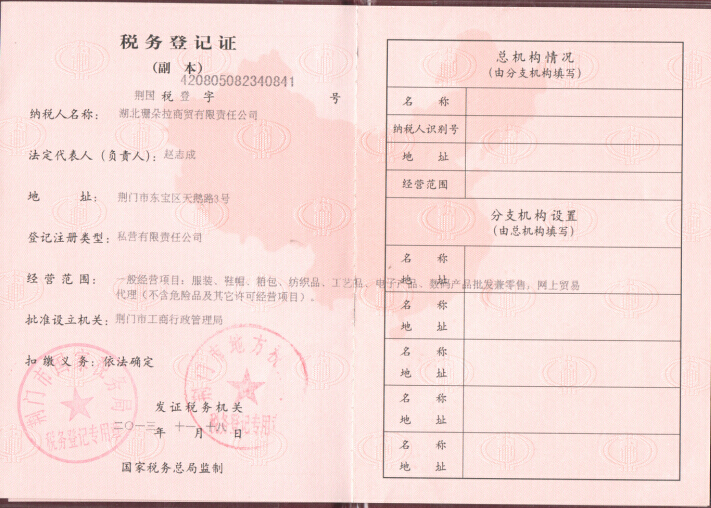 税务登记证
(副 本)
420805082340841
荆国 税 登 字 号
纳税人名称: 湖北朵拉商贸有限责任公司
法定代表人(负责人): 赵志成
地 址: 荆门市东宝区天鹅路3号
登记注册类型: 私营有限责任公司
经营范围: 一般经营项目: 服装、鞋帽、箱包、纺织品、工艺品、电子产品、数码产品批发兼零售, 网上贸易
代理(不含危险品及其它许可经营项目)。
批准设立机关: 荆门市工商行政管理局
扣缴义务: 依法确定
发证税务机关
二〇一三 年 十一 月 十八 日
国家税务总局监制
荆门市 务局
税务登记专用章
荆门市地方
税务登记专用
总机构情况
(由分支机构填写)
名 称
纳税人识别号
地 址
经营范围
分支机构设置
(由总机构填写)
名 称
地 址
名 称
地 址
名 称
地 址
名 称
地 址
名 称
地 址